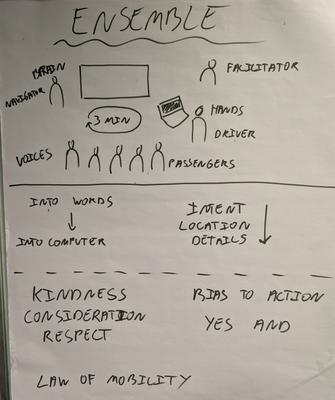 ENSEMBLE
BRAIN
NAVIGATOR
FACILITATOR
3 MIN
HANDS
DRIVER
VOICES
PASSENGERS
INTO WORDS
INTO COMPUTER
INTENT
LOCATION
DETAILS
KINDNESS
CONSIDERATION
RESPECT
BIAS TO ACTION
YES AND
LAW OF MOBILITY